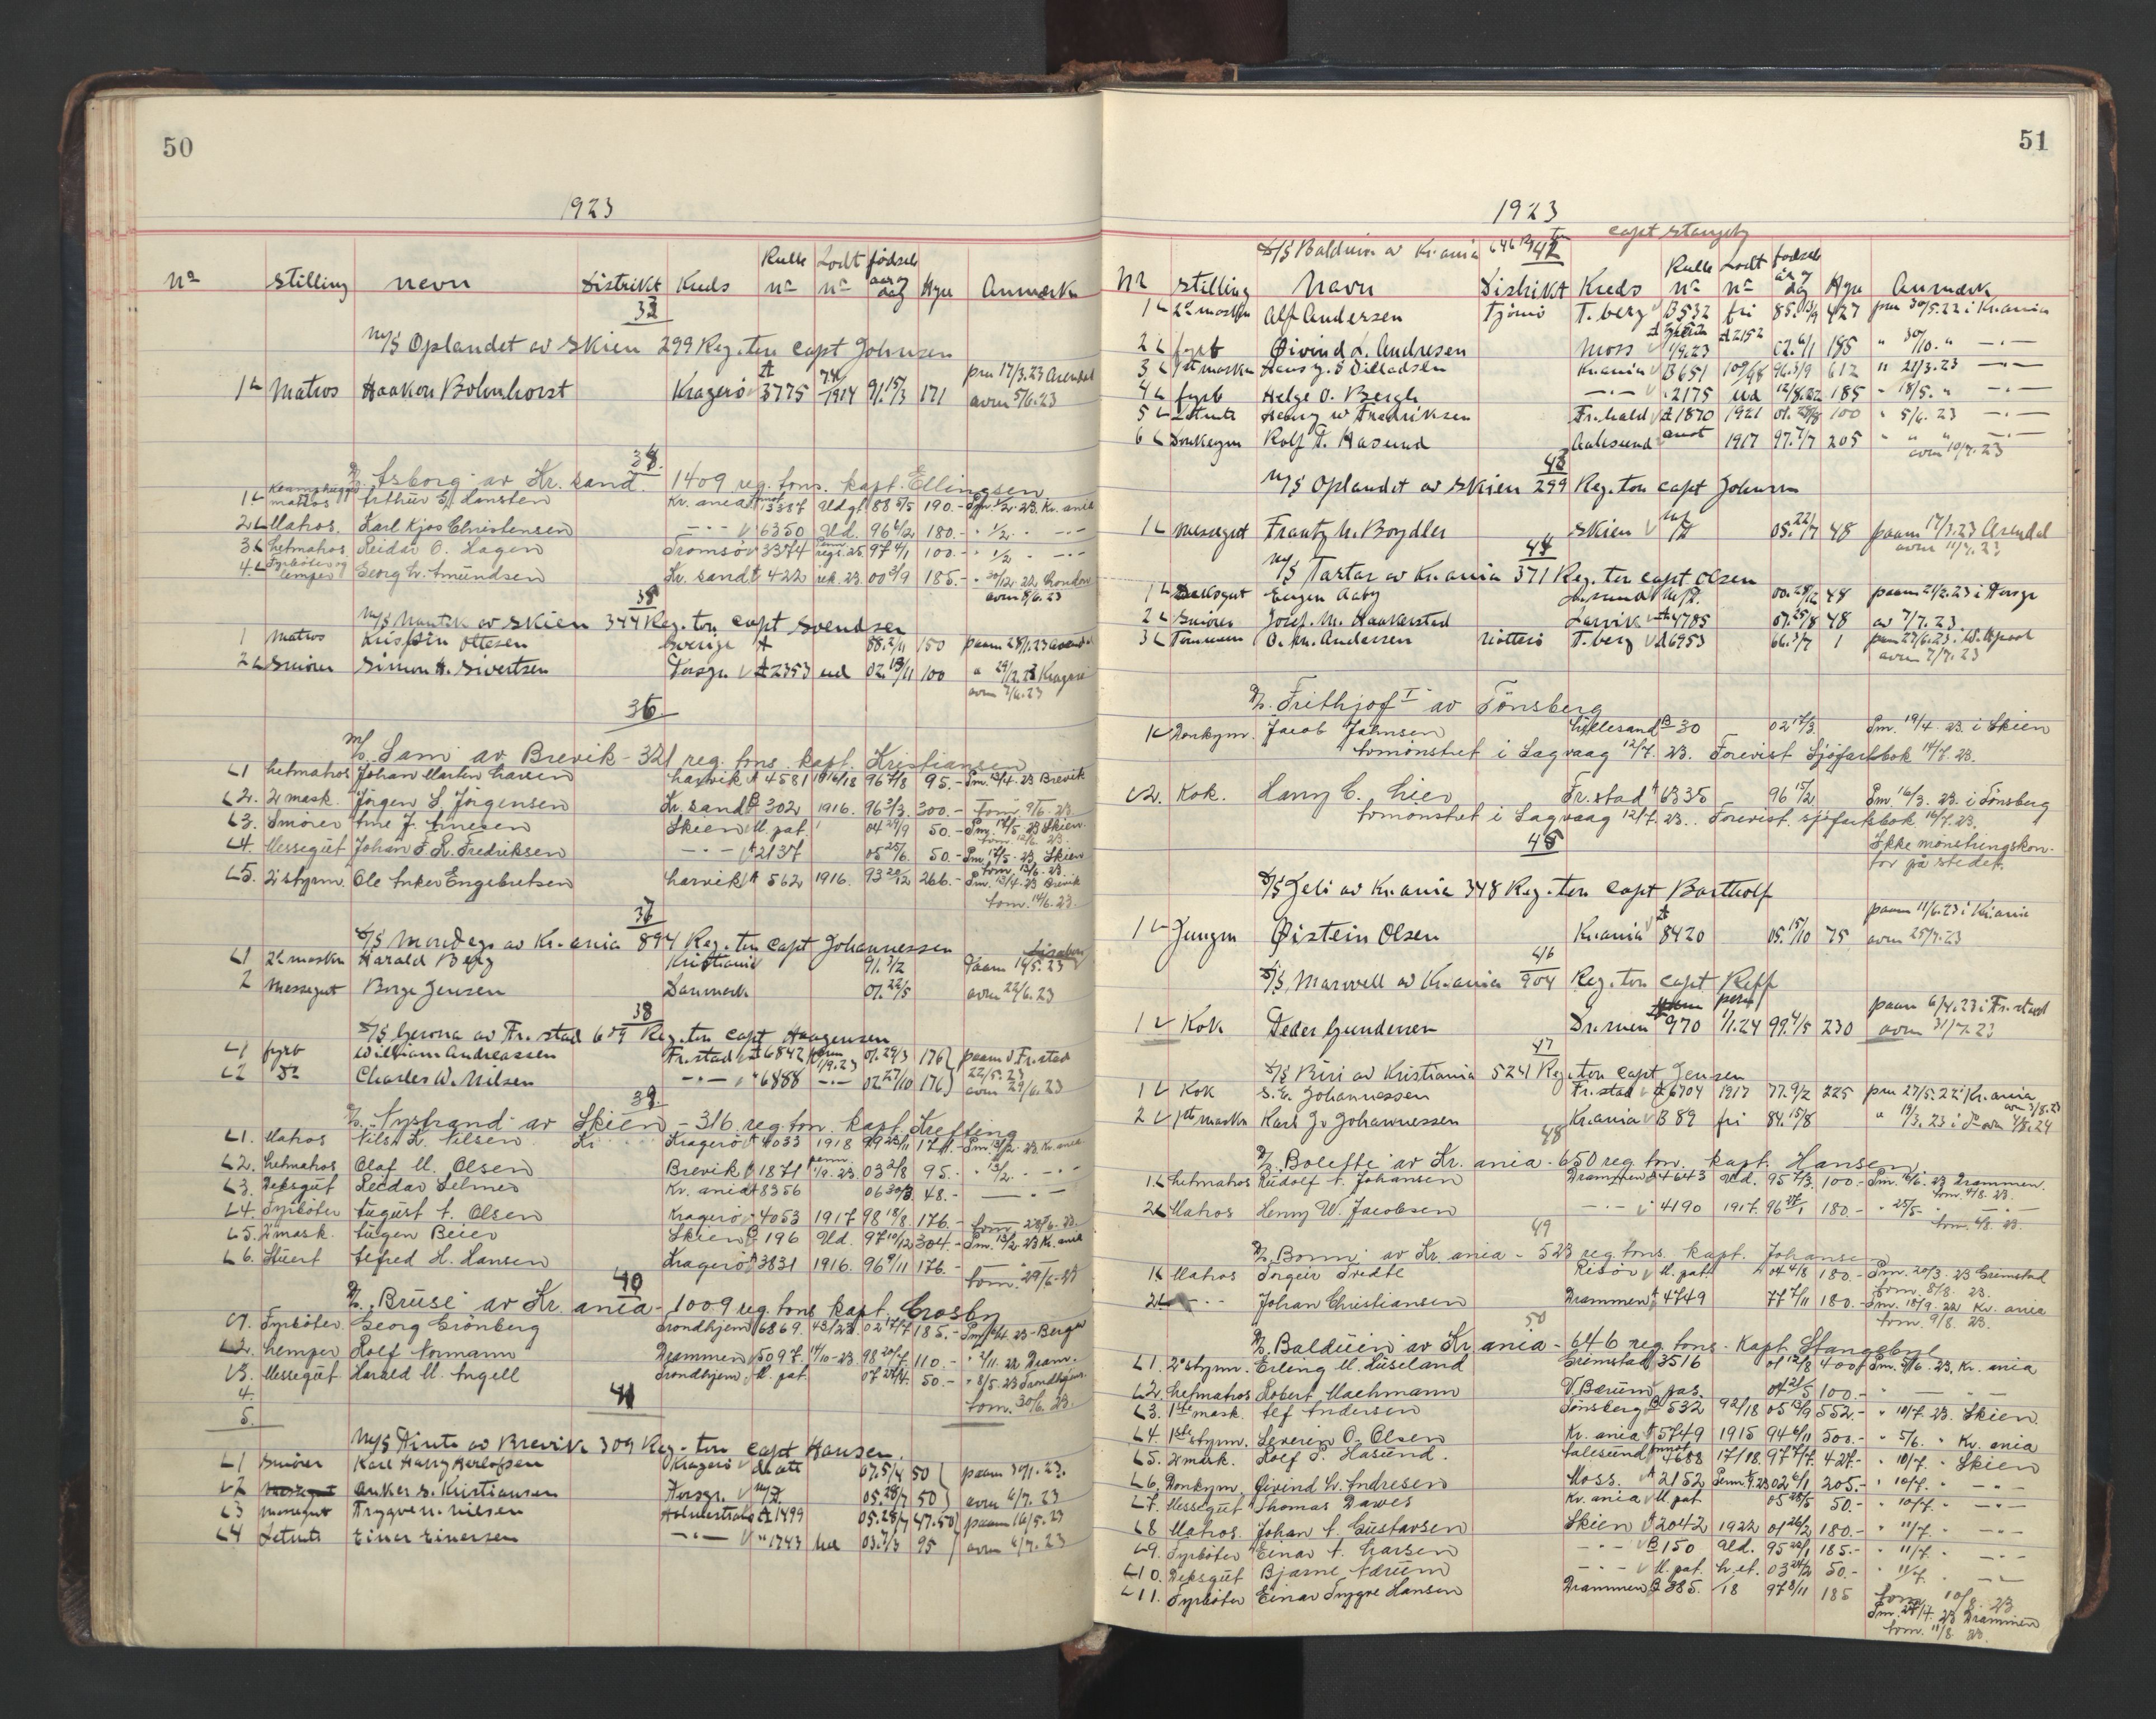 50
1923
No stilling nevn Distrikt Kreds Rulle no Lodt no fødsels aar og dag Hyre Anmerk
33
M/S Oplandet av Skien 299 Reg. ton Capt Johnsen
1 Matros Haakon Bohnhorst Kragerö A 3775 1914 91.15/3 171 pm 17/3.23 Arendal
avm 5/6.23
34.
Asborg av Kr. sand. 1409 reg. tons. kapt. Ellingsen
1 matros Arthur G. Hansten Kr. ania 13387 Udgf. 88 6/5 190.- Pm. 1/2. 23. Kr. ania
2 Matros. Karl Kjos Christensen - - - 6350 Ud. 96 6/2 180.- " 1/2. - - -
3 Letmatros Reidar O. Hagen Tromsö 3374 97 4/1 100.- " 1/2 - - -
4. Fyrböter og lemper Georg W. Amundsen Kr. sand 422 rek. 23. 00 3/9 185.- " 30/12. 22 London
avm 8/6.23
35
M/S Nautik av Skien 344 Reg. ton Capt Svendsen
1 Matros Kristin Ottesen Sverige A 88.2/11 150 paam 28/1.23 Arendal
2 Smörer Simon H. Sivertsen Porsgr. A 2353 ud 02.13/11 100 " 29/12.23 Kragerö
avm 7/6.23
36
M/S. Sam av Brevik - 321 reg. tons. kapt. Kristiansen
1 Letmatros Johan Marten Larsen Larvik A 4581 1916/18 96 7/8 95.- Pm. 13/4. 23 Brevik
2. 2 mask. Jörgen S. Jörgensen Kr. sand B 302 1916. 96 3/3. 300.- fom. 9/6. 23
3. Smörer Arne J. Arnesen Skien M. pat. 04 29/9 50.- Pm. 17/5. 23 Skien.
fom. 12/6. 23.
4. Messegut Johan F. R. Fredriksen - - - A 2137 05 25/6. 50.- Pm. 17/5. 23 Skien
fom. 13/6. 23.
5. 2' styrm. Ole Anker Engebretsen Larvik A 562 1916. 93 20/12 266.- Pm. 13/4. 23 Brevik
fom. 14/6. 23
37
S/S Mondego av Kr.ania 894 Reg. ton Capt Johannessen
1 2d maskn Harald Berg Kristiania 91.3/2 Paam 14/5.23 Lissabon
2 Messegut Borge Jensen Danmark 01.22/5 avm 22/6.23
38
S/S Gerona av Fr. stad 679 Reg. ton Capt Haagensen
1 fyrb William Andreassen Fr. stad A 6842 perm 1/9.23 01.29/3 176 paam i Fr. stad
2 Do Charles W. Nilsen - - - " 6888 - - 02 27/10 176 22/5.23
avm 29/6.23
39.
Nystrand av Skien - 316 reg. ton. kapt. Krefting
1. Matros Nils K. Nilsen Kragerö A 4033 1918 99 23/11 171.- Pm. 13/2. 23 Kr. ania
2. Letmatros Olaf M. Olsen Brevik A 1871 perm. 1/9. 23. 03 2/8 95.- " 13/2. - - -
3. Deksgut Reidar Selmer Kr. ania A 8356 06 30/3 48.- - - -
4. Fyrböter August A. Olsen Kragerö 4053 1917 98 18/8 176.- fom. 28/6. 23.
5. 2 mask. Eugen Beier Skien B 196 Ud. 97 10/12 304.- Pm. 13/2. 23 Kr. ania
6. Stuert Alfred H. Hansen Kragerö A 3831 1916. 96 9/11 176.-
fom. 29/6-23
40
Bruse av Kr. ania - 1009 reg. tons kapt. Crosby
1. Fyrböter. Georg Grönberg Trondhjem 6869. 43/23. 02 17/7 185.- 23 - Bergen
2. Lemper Rolf Normann Drammen 5097. 14/10-23. 98 20/7 110.- " 2/11. 22 Dram.
3. Messegut Harald M. Angell Trondhjem M. pat. 07 24/4. 50.- " 8/5. 23 Trondhjem.
4. fom. 30/6. 23.
5.
41
M/S Aruto av Brevik 309 Reg. ton Capt Hansen.
1 Smörer Karl Harry Herlofsen Kragerö 07.5/4 50 paam 30/1.23.
2 Anker S. Kristiansen Porsgr. 05.28/7 50 avm 6/7.23
3 messegut Trygve n. nilsen Holmestrand A 1499 05.28/4 47.50 paam 16/5.23
4 Letmts Einar Einersen - - - " 1743 03.3/3 95 avm 6/7.23
51
1923
S/S Balduin av Kr.ania 646 Rg ton 42 capt Stangeby
Nr Stilling Navn Distrikt Kreds Rulle no Lodt no fødsels år og dag Hyre Anmerk
1 2d maskn Alf Andersen Tjömö T. berg B 532 fri 85.13/9 427 pm 30/5.22 i Kr.ania
2 fyrb Øivind L. Andresen Moss 1/9.23 A 2152 02.6/1 185 " 30/10. " - - -
3 1st maskn Hans G. S Dilladsen Kr.ania B 651 109/68 96.3/9 612 " 21/3.23 - - -
4 fyrb Helge O. Bergh - - - 2175 ud 12/8.22 185 " 18/5. " - - -
5 Letmts Henry W Fredriksen Fr. hald A 1870 1921 01.28/8 100 " 5/6. 23 - - -
6 Donkeym Rolf P. Hasund Aalesund anot 1917 97.7/7 205 " " " - - -
avm 10/7.23
43
M/S Oplandet av Skien 299 Reg. ton Capt Johnsen
1 Messegut Frantz M. Boydler Skien 05.22/7 48 paam 17/3.23 Arendal
avm 11/7.23
44
M/S Tartar av Kr.ania 371 Reg. ton capt Olsen
1 Deksgut Eugen Aaby 00.28/12 48 paam 21/2.23 i Porsgr
2 Smörer Josef. M. Haakerstad Larvik A 4785 07.25/8 48 av 7/7.23.
3 Tömmerm O. M. Andersen Nötterö T. berg A 6953 66.3/7 1 paam 27/6.23. i W. Hpool
avm 7/7.23
Frithjof I av Tönsberg
1 Donkym. Jacob Johnsen Lillesand B 30 02 17/3. Pm. 19/4. 23. i Skien
fomönstret i Sagvaag 12/7. 23. Forevist Sjöfartsbok 14/7. 23.
2. Kok. Harry C. Lier Fr. stad A 6335 96 15/2 Pm. 16/3. 23. i Tönsberg
fomönstret i Sagvaag 12/7. 23.. Forevist. sjöfartsbok 16/7. 23.
Ikke mönstringskon-
tor på stedet.
45
S/S Jeli av Kr.ania 348 Reg. ton Capt Bartholf
paam 11/6.23 i Kr.ania
1 Jungm Øistein Olsen Kr.ania A 8420 05.15/10 75 avm 25/7.23
46
S/S Marwell av Kr.ania 904 Reg. ton Capt Reff
paam 6/4.23 i Fr. stad
1 Kok Peder Gundersen Drammen 970 perm 1/1.24 99.4/5 230 avm 31/7.23
47
S/S Biri av Kristiania 5241 Reg. ton Capt Jensen
1 Kok S. E. Johannessen Fr. stad A 6704 1917 77.9/2 225 pm 27/5.22 i Kr.ania
avm 3/8.23
2 1ste maskn Karl J. Johannessen Kr.ania B 89 fri 84.15/8 " 19/3. 23 i Do avm 3/8.24
48
Bolette av Kr. ania - 650 reg. ton. kapt. Hansen
1. Letmatros Rudolf A. Johansen Drammen A 4643 Ud. 95 7/3. 100.- Pm. 16/6. 23 Drammen.
fom. 4/8. 23.
2. Matros Henry W. Jacobsen - - - 4190 1917. 96 28/1 180.- " 25/5- - - -
fom. 4/8. 23.
49
Bonn av Kr. ania - 523 reg. tons. kapt. Johansen
1. Matros Torgeir Tredte Risör M. pat. 04 4/8 180.- Pm. 20/3. 23 Grimstad
fom. 8/8. 23.
2. - - Johan Christiansen Drammen A 4749 77 7/11 180.- Pm. 18/9. 22 Kr. ania
fom. 9/8. 23.
50
Balduin av Kr. ania - 646 reg. tons. Kapt. Stangebye
1. 2' styrm. Erling M. Huseland Grimstad 3516 01 12/8 400 Pm. 5/6. 23. Kr. ania
2. Letmatros Robert Machmann V Bærum pas. 04 21/5 100.- " - - -
3. 1ste mask. Alf Andersen Tönsberg B 532 92/18 05 13/9 552.- " 10/7. 23. Skien
4. 1ste styrm. Severin O. Olsen Kr. ania A 5749 1915 94 6/11 500.- " 5/6. " Kr. ania
5. 2 mask. Rolf P. Hasund. Aalesund 4688 17/18. 97 7/7. 427.- " 10/7. " Skien
6. Donkym. Öivind L. Andresen Moss. A 2152 02 6/1 205.- " 10/7. " - - -
7. Messegut Thomas Dawes Kr. ania M. pat. 05 28/5 50.- " 10/7. " - - -
8 Matros. Johan A. Gustavsen Skien A 2042 1922 01 26/2 180.- " 11/7. " - - -
9. Fyrböter Einar A. Larsen - - - B 150 Ud. 95 22/1 185.- " 11/7. " - - -
10. Deksgut Bjarne Nærum - - - M. pat. 03 24/2 50.- " 11/7. - - -
fom 10/8. 23
11. Fyrböter Einar Trygve Hansen Drammen A 385. /18 97 8/11 185 Pm. 24/4. 23 Drammen
fom. 11/8 23.